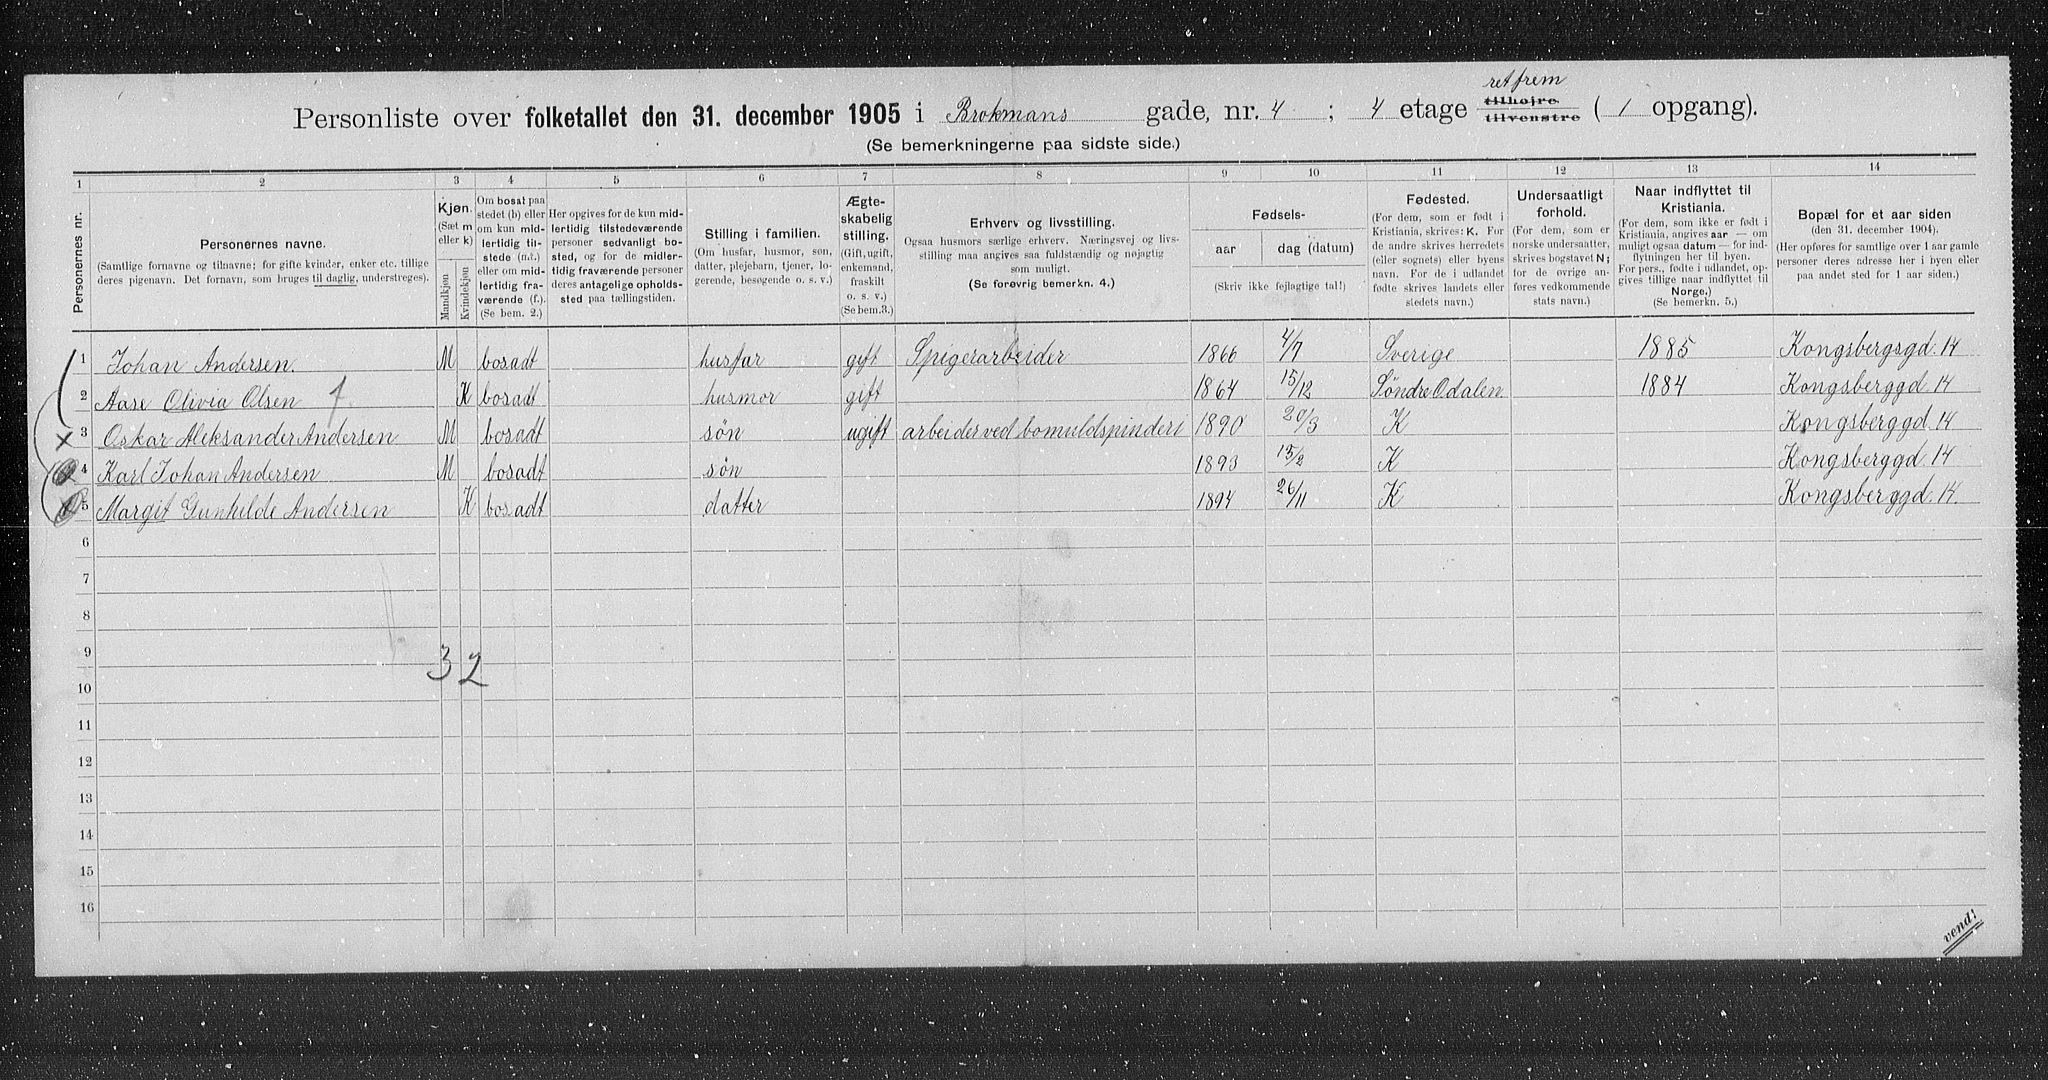 retfrem
Personliste over folketallet den 31. december 1905 i Brokmans gade, nr. 4 ; 4 etage tilhøjre tilvenstre ( 1 opgang).
(Se bemerkningerne paa sidste side.)
1 2 3 4 5 6 7 8 9 10 11 12 13 14
Personernes nr.
Personernes navne.
(Samtlige fornavne og tilnavne; for gifte kvinder, enker etc. tillige
deres pigenavn. Det fornavn, som bruges til daglig, understreges).
Kjøn.
(Sæt m
eller k)
Mandkjøn
Kvindekjøn
Om bosat paa
stedet (b) eller
om kun mid-
lertidig til-
stede (m.t.)
eller om mid-
lertidig fra-
værende (f.).
(Se bem. 2.)
Her opgives for de kun mid-
lertidig tilstedeværende
personer sedvanligt bo-
sted, og for de midler-
tidig fraværende personer
deres antagelige opholds-
sted paa tællingstiden.
Stilling i familien.
(Om husfar, husmor, søn,
datter, plejebarn, tjener, lo-
gerende, besøgende o. s. v.)
Ægte-
skabelig
stilling.
(Gift, ugift,
enkemand,
fraskilt
o. s. v.)
(Se bem.3.)
Erhverv og livsstilling.
Ogsaa husmors særlige erhverv. Næringsvej og livs-
stilling maa angives saa fuldstændig og nøjagtig
som muligt.
(Se forøvrig bemerkn. 4.)
Fødsels-
aar
dag (datum)
(Skriv ikke fejlagtige tal!)
Fødested.
(For dem, som er født i
Kristiania, skrives: K. For
de andre skrives herredets
(eller sognets) eller byens
navn. For de i udlandet
fødte skrives landets eller
stedets navn.)
Undersaatligt
forhold.
(For dem, som er
norske undersaatter,
skrives bogstavet N;
for de øvrige an-
føres vedkommende
stats navn.)
Naar indflyttet til
Kristiania.
(For dem, som ikke er født i
Kristiania, angives aar — om
muligt ogsaa datum — for ind-
flytningen her til byen.
For pers., fødte i udlandet, op-
gives tillige naar indflyttet til
Norge.)
(Se bemerkn. 5.)
Bopæl for et aar siden
(den 31. december 1904).
(Her opføres for samtlige over 1 aar gamle
personer deres adresse her i byen eller
paa andet sted for 1 aar siden.)
1 Johan Andersen. M bosadt husfar gift Spigerarbeider 1866 4/7 Sverige 1885 Kongsbergsgd. 14
2 Aase Olivia Olsen K bosadt husmor gift 1864 15/12 Søndre Odalen 1884 Kongsberggd 14
x 3 Oskar Aleksander Andersen M bosadt søn ugift arbeider ved bomuldspinderi 1890 20/3 K Kongsberggd. 14
4 Karl Johan Andersen M bosadt søn 1893 15/2 K Kongsberggd 14
5 Margit Gunhilde Andersen K bosadt datter 1894 26/11 K Kongsberggd. 14.
6
7
8
9
3 2
10
11
12
13
14
15
16
vend!